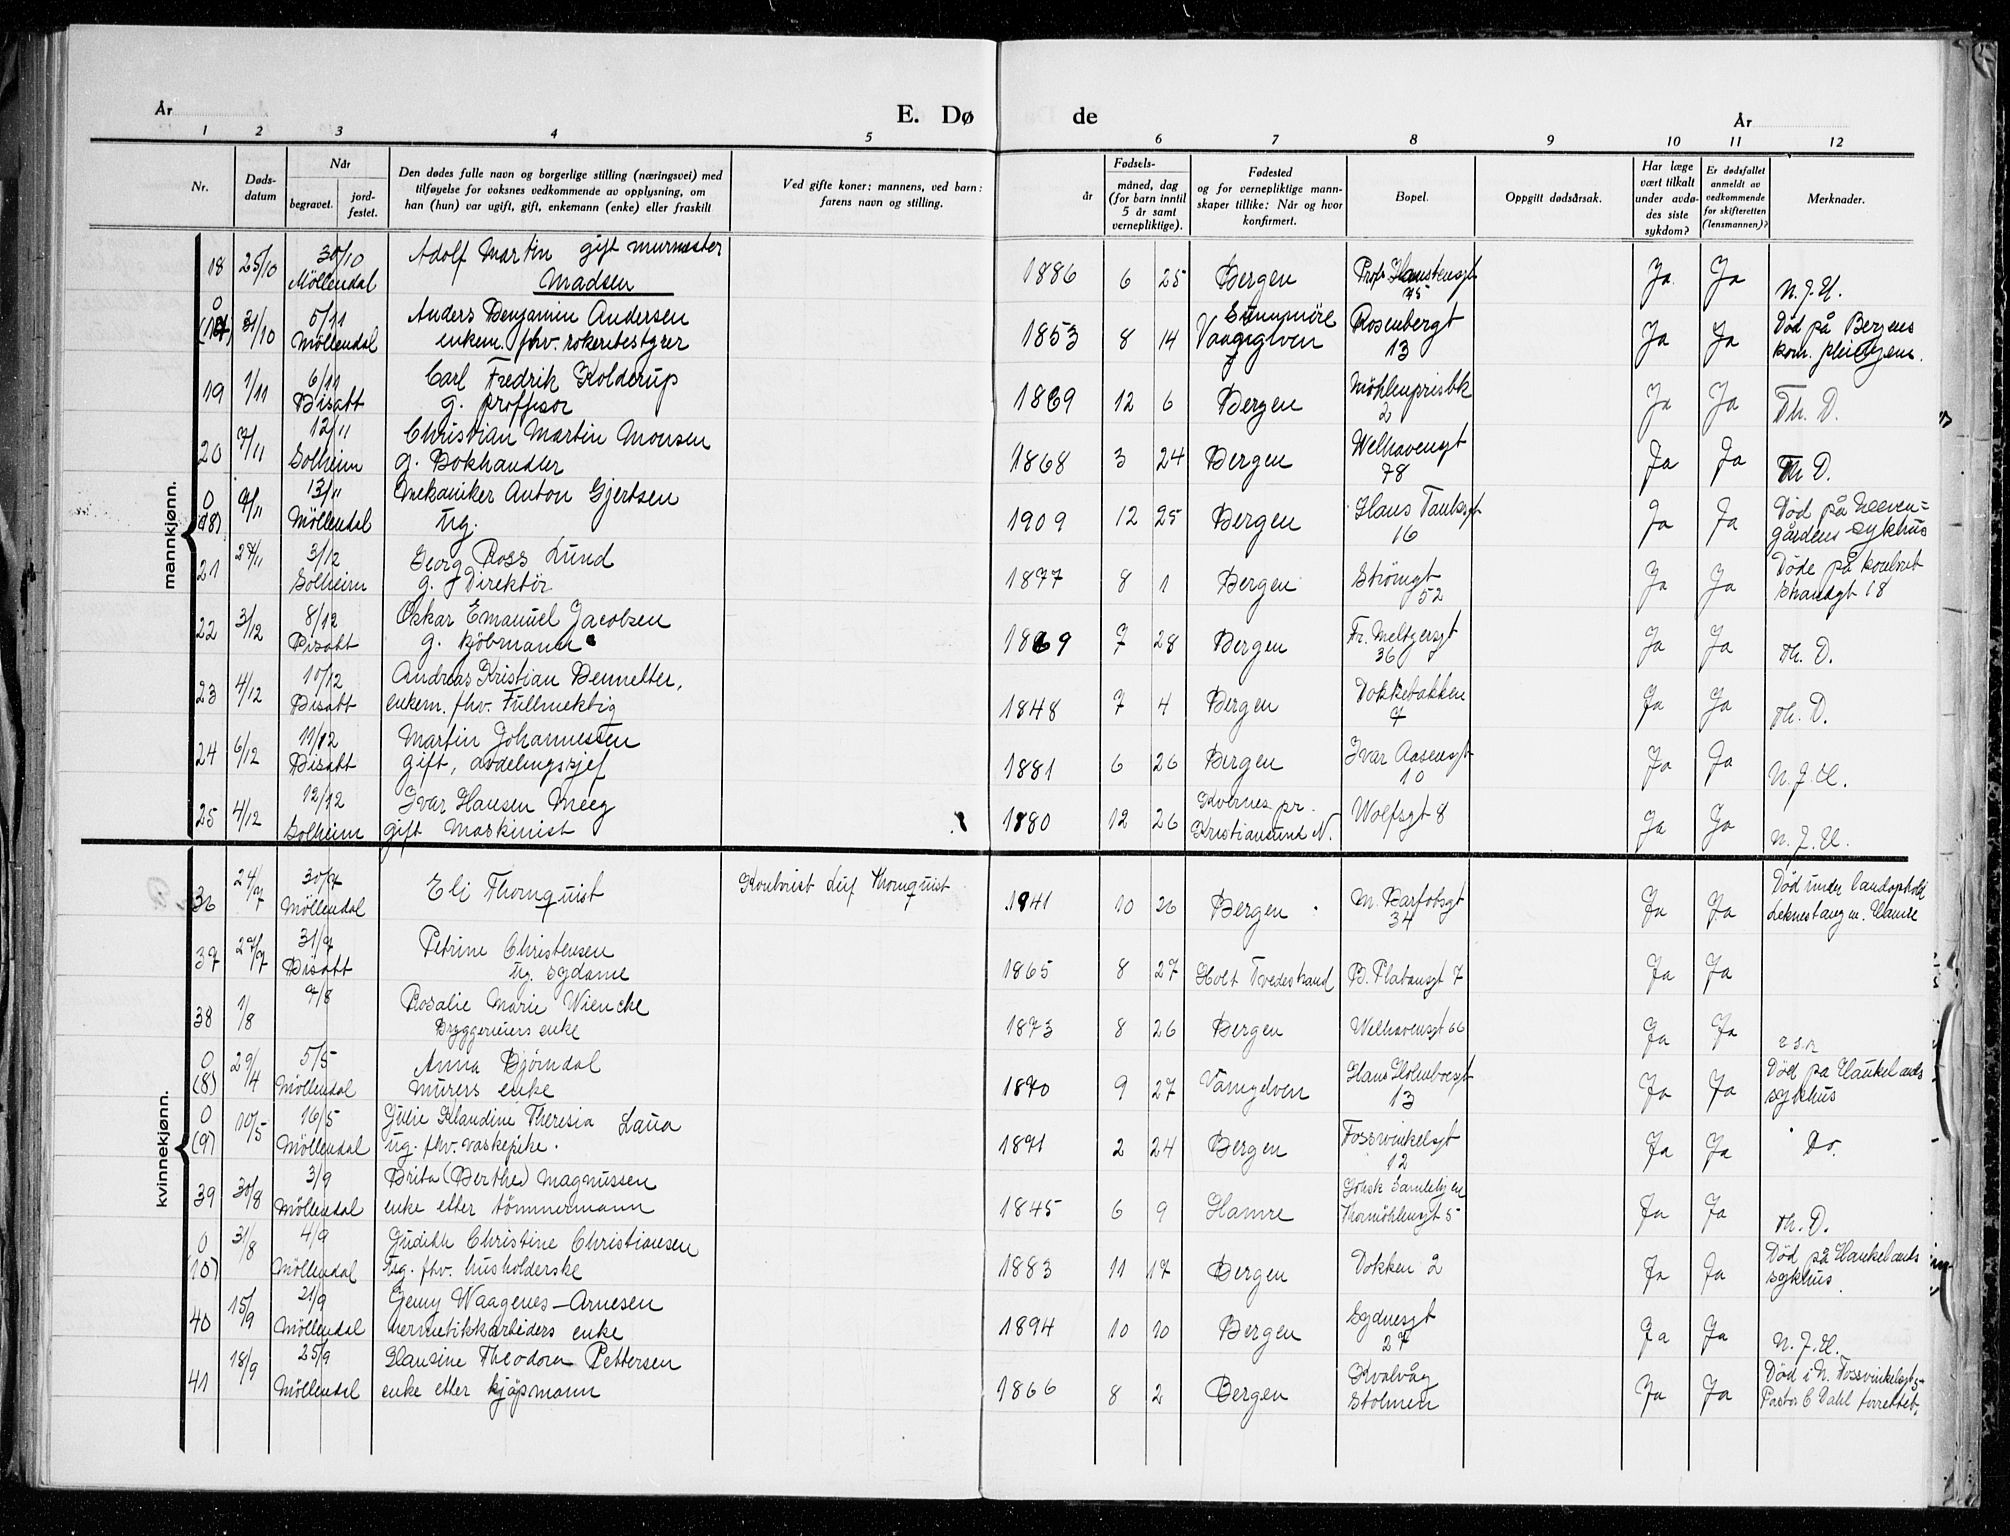 År
E. Dø de
År
1 2 3 4 5 6 7 8 9 10 11 12
Nr.
Dødsdatum
Når
begravet.
jordfestet.
Den dødes fulle navn og borgerlige stilling (næringsvei) med
tilføyelse for voksnes vedkommende av opplysning, om
han (hun) var ugift, gift, enkemann (enke) eller fraskilt
Ved gifte koner: mannens, ved barn:
farens navn og stilling.
Fødsels-
år
måned, dag
(for barn inntil
5 år samt
vernepliktige).
Fødested
og for vernepliktige mann-
skaper tillike: Når og hvor
konfirmert.
Bopel.
Oppgitt dødsårsak.
Har læge
vært tilkalt
under avdø-
des siste
sykdom?
Er dødsfallet
anmeldt av
vedkommende
for skifteretten
(lensmannen)?
Merknader.
mannkjønn.
18 25/10 30/10 Adolf Martin gift murmester 1886 6 25 Bergen Prof. Hanstensgt Ja Ja N.J.H.
Möllendal Madsen 75
0 31/10 5/11 Anders Benjamin Andersen 1853 8 14 Sunnmöre Rosenbergt Ja Ja Död på Bergens
Möllendal enkem. fhv. 13 kom. pleiehjem.
19 1/11 6/11 Carl Fredrik Kolderup 1869 12 6 Bergen Möhlenprisbk Ja Ja Th. D.
Bisatt g. proffisor 2
20 7/11 12/11 Christian Martin Monsen 1868 3 24 Bergen Welhavensgt Ja Ja Th D.
Solheim g. Bokhandler 78
0 9/11 13/11 Mekaniker Anton Gjertsen 1909 12 25 Bergen Hans Tanksgt Ja Ja Död på Neeven=
(18) Möllendal ug. 16 gårdens sykhus
21 27/11 3/12 Georg Ross Lund 1897 8 1 Bergen Strömgt Ja Ja Döde på kontoret
Solheim g. Direktör 52 Strandgt 18
22 3/12 8/12 Oskar Emanuel Jacobsen 1869 7 28 Bergen Fr. Meltzersgt Ja Ja Th. D.
Bisatt g. kjöbmann 36
23 4/12 10/12 Andreas Kristian Bennetter, 1848 7 4 Bergen Dokkebakken Ja Ja Th. D.
Bisatt enkem. fhv. Fullmektig 7
24 6/12 11/12 Martin Johannessen 1881 6 26 Bergen Ivar Aasensgt Ja Ja N.J.H.
Bisatt gift, avdelingssjef 10
25 4/12 12/12 Ivar Hansen Meeg 1880 12 26 Kvernes pr. Wolfsgt 8 Ja Ja N.J.H.
Solheim gift Maskinist Kristiansund N.
kvinnekjønn.
36 24/7 30/7 Eli Thornquist Kontorist Leif Thornquist 1941 10 26 Bergen M. Barfotsgt Ja Ja Död under landophold
Möllendal 34 Leknestangen. Hamre
37 27/7 31/7 Petrine Christensen 1865 8 27 Holt Tvedestrand B. Platousgt 7 Ja Ja
Bisatt ug. sydame
38 1/8 7/8 Rosalie Marie Wiencke 1873 8 26 Bergen Welhavensgt 66 Ja Ja
Bryggerieiers enke
0 29/4 5/5 Anna Bjørndal 1870 9 27 Vangelven Hans Holmboesgt Ja Ja Død på Haukelands
(8) Möllendal Murers enke 13 sykhus
0 10/5 16/5 Julie Klandine Theresia Laua 1891 2 24 Bergen Fossvinkelsgt Ja Ja Do.
(9) Möllendal ug. fhv. vaskepike. 12
39 30/8 3/9 Brita (Berthe) Magnussen 1845 6 9 Hamre Ja Ja Th. D.
Möllendal enke etter tömmermann Thormöhlensgt 5
0 31/8 4/9 Judith Christine Christiansen 1883 11 17 Bergen Dokken 2 Ja Ja Död på Haukelands
(10) Möllendal ug. fhv. husholderske sykhus.
40 15/9 21/9 Jenny Waagenes - Arnesen 1894 10 10 Bergen Sydnesgt Ja Ja N.J.H.
Möllendal hermetikkarbeiders enke 27
41 18/9 25/9 Hansine Theodora Pettersen 1866 8 2 Bergen Kvalvåg Ja Ja Død i N. Fossvinkelsgt 5-
Möllendal enke etter kjøpmann Stolmen Pastor C Dahl forrettet.